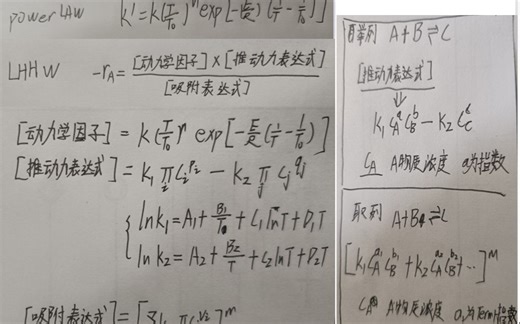 power LAW k' = k(T/T₀)ⁿ exp[-E/R(1/T - 1/T₀)]
LHHW -r_A = [动力学因子]×[推动力表达式] / [吸附表达式]
[动力学因子] = k(T/T₀)ⁿ exp[-E/R(1/T - 1/T₀)]
[推动力表达式] = K₁ π C_i^{P_i} - K₂ π C_j^{q_j}
lnK₁ = A₁ + B₁/T + C₁lnT + D₁T
lnK₂ = A₂ + B₂/T + C₂lnT + D₂T
[吸附表达式] =
A+B⇌C
[推动力表达式]
⇓
K₁ C_A^a C_B^b - K₂ C_C^c
C_A A物质浓度 a为指数
⇌C
[K₁ C_A^{a₁} C_B^{b₁} + K₂ C_A^{a₂} C_B^{b₂} + ⋯]^M
C_A A物质浓度